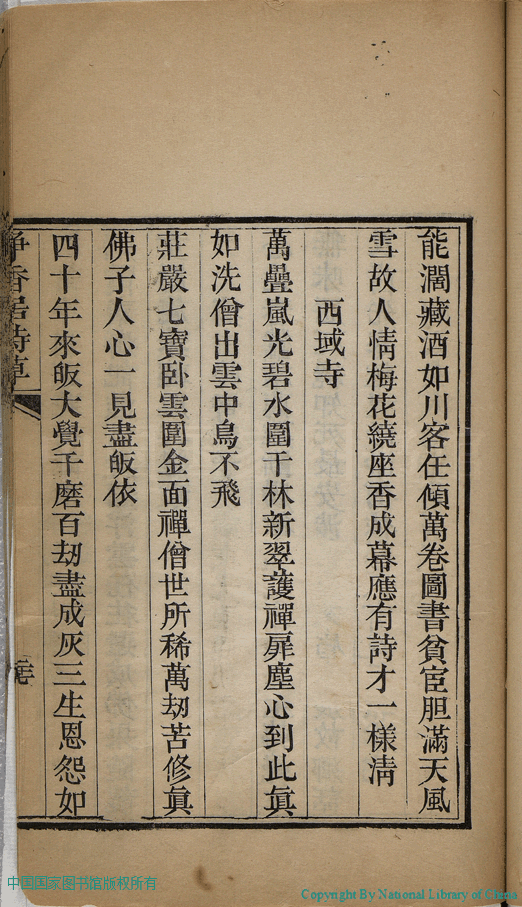 能濶藏酒如川客任傾萬卷圖書貧宦胆滿天風
雪故人情梅花繞座香成幕應有詩才一樣淸
西域寺
萬疊嵐光碧水圍千林新翠護禪扉塵心到此眞
如洗僧出雲中鳥不飛
莊嚴七寶卧雲圍金面禪僧世所稀萬刼苦修眞
佛子人心一見盡皈依
四十年來皈大覺千磨百刼盡成灰三生恩怨如
香居詩草
中国国家图书馆版权所有
Copyright By National Library of China